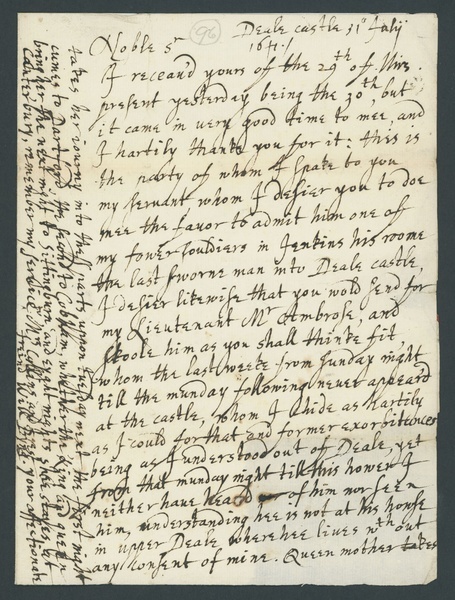 96
Deale castle 31° July
1641./
Noble Sr
I receau'd yours of the 29th of this
present yesterday being the 30th, but
it came in very good time to mee, and
I hartily thanke you for it: this is
the party of whom I spake to you
my servant whom I desier you to doe
mee the favor to admit him one of
my fower souldiers in Jenkins his roome
the last sworne man into Deale castle,
I desier likewise that you wold send for
my Lieutenant Mr Ambrose, and
skoole him as you shall thinke fit,
whom the last weeke from sunday night
till the munday following never appear'd
at the castle, whom I chide as hartily
as I could for that and former exorbitances
being as I understood out of Deale, yet
from that munday night till this hower I
neither have heard of him nor seen
him, understanding hee is not at his house
in upper Deale where hee lives wth out
any consent of mine. Queen mother takes
takes her iourny into the Spaets upon tuesday next the first night
cumes to Dartford, the second to Cobham, whether the king and queen
bring her the next night to Sittingburn and
Canterbury, remember my service to Mrs
freind Will
your affectionate